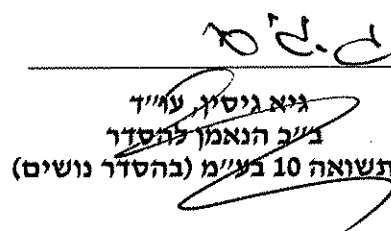 גיא גיסין, עו״ד
ב״כ הנאמן להסדר
תשואה 10 בע״מ (בהסדר נושים)